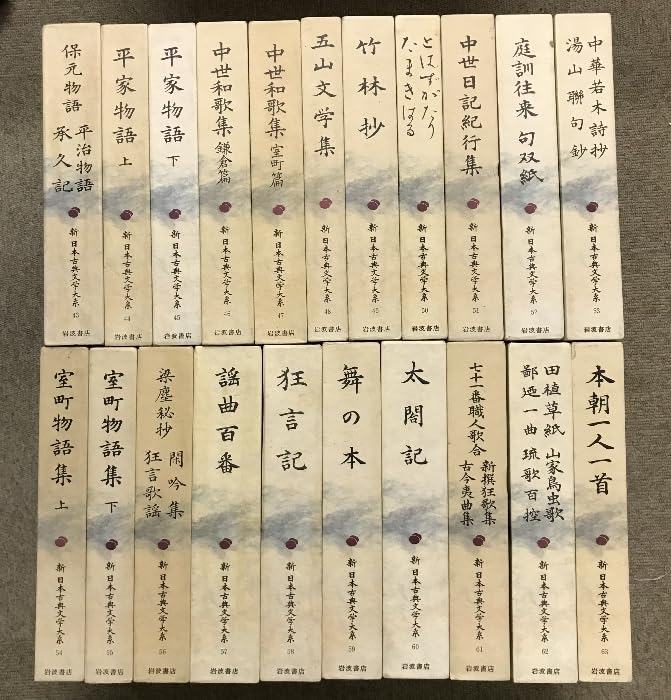 保元物語 平治物語 承久記
新 日本古典文学大系 43
岩波書店
平家物語 上
新 日本古典文学大系 44
岩波書店
平家物語 下
新 日本古典文学大系 45
岩波書店
中世和歌集 鎌倉篇
新 日本古典文学大系 46
岩波書店
中世和歌集 室町篇
新 日本古典文学大系 47
岩波書店
五山文学集
新 日本古典文学大系 48
岩波書店
竹林抄
新 日本古典文学大系 49
岩波書店
とはずがたり
たまきはる
新 日本古典文学大系 50
岩波書店
中世日記紀行集
新 日本古典文学大系 51
岩波書店
庭訓往来 句双紙
新 日本古典文学大系 52
岩波書店
中華若木詩抄
湯山聯句鈔
新 日本古典文学大系 53
岩波書店
室町物語集 上
新 日本古典文学大系 54
岩波書店
室町物語集 下
新 日本古典文学大系 55
岩波書店
梁塵秘抄 閑吟集 狂言歌謡
新 日本古典文学大系 56
岩波書店
謡曲百番
新 日本古典文学大系 57
岩波書店
狂言記
新 日本古典文学大系 58
岩波書店
舞の本
新 日本古典文学大系 59
岩波書店
太閤記
新 日本古典文学大系 60
岩波書店
七十一番職人歌合
新撰狂歌集
古今夷曲集
新 日本古典文学大系 61
岩波書店
田植草紙 山家鳥虫歌
鄙廼一曲 琉歌百控
新 日本古典文学大系 62
岩波書店
本朝一人一首
新 日本古典文学大系 63
岩波書店